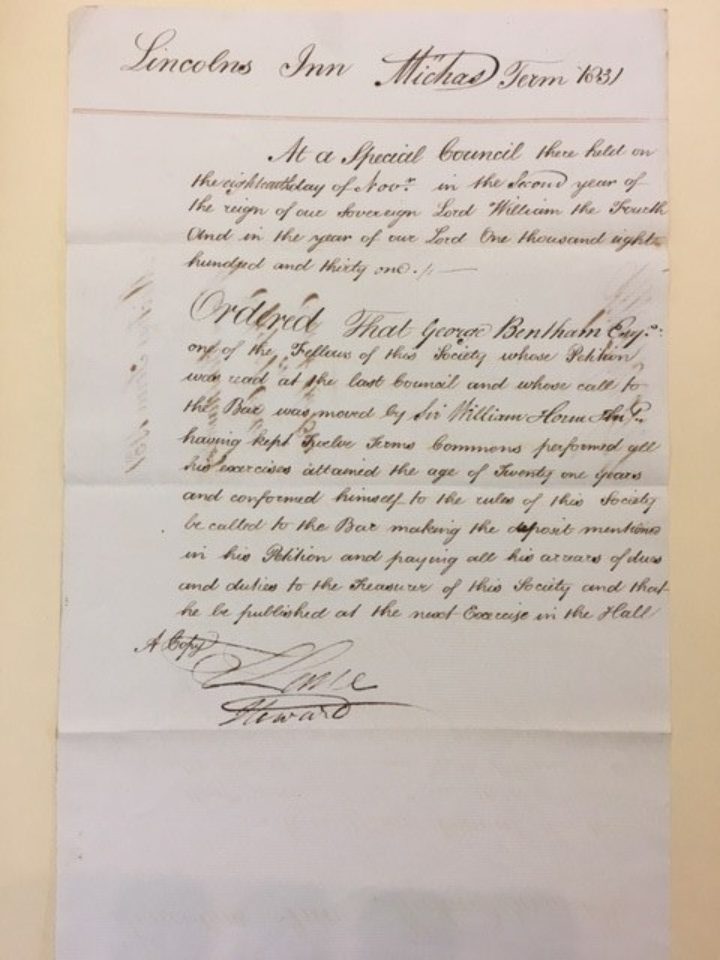 Lincolns Inn Michas Term 1831
At a Special Council there held on
the eighteenth day of Novr. in the Second year of
the reign of our Sovereign Lord William the Fourth
And in the year of our Lord One thousand eight
hundred and thirty one.
Ordered That George Bentham Esqr.
one of the Fellows of this Society whose Petition
was read at the last Council and whose call to
the Bar was moved by Sir William Horne
having kept Twelve Terms Commons performed all
his exercises attained the age of Twenty one years
and conformed himself to the rules of this Society
be called to the Bar making the deposit mentioned
in his Petition and paying all his arrears of dues
and duties to the Treasurer of this Society and that
he be published at the next Exercise in the Hall
A Copy
Steward